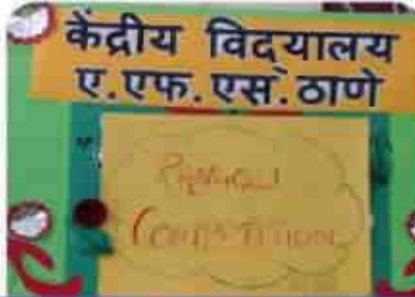 केंद्रीय विद्यालय
ए.एफ.एस.ठाणे
RANGOLI
COMPETITION